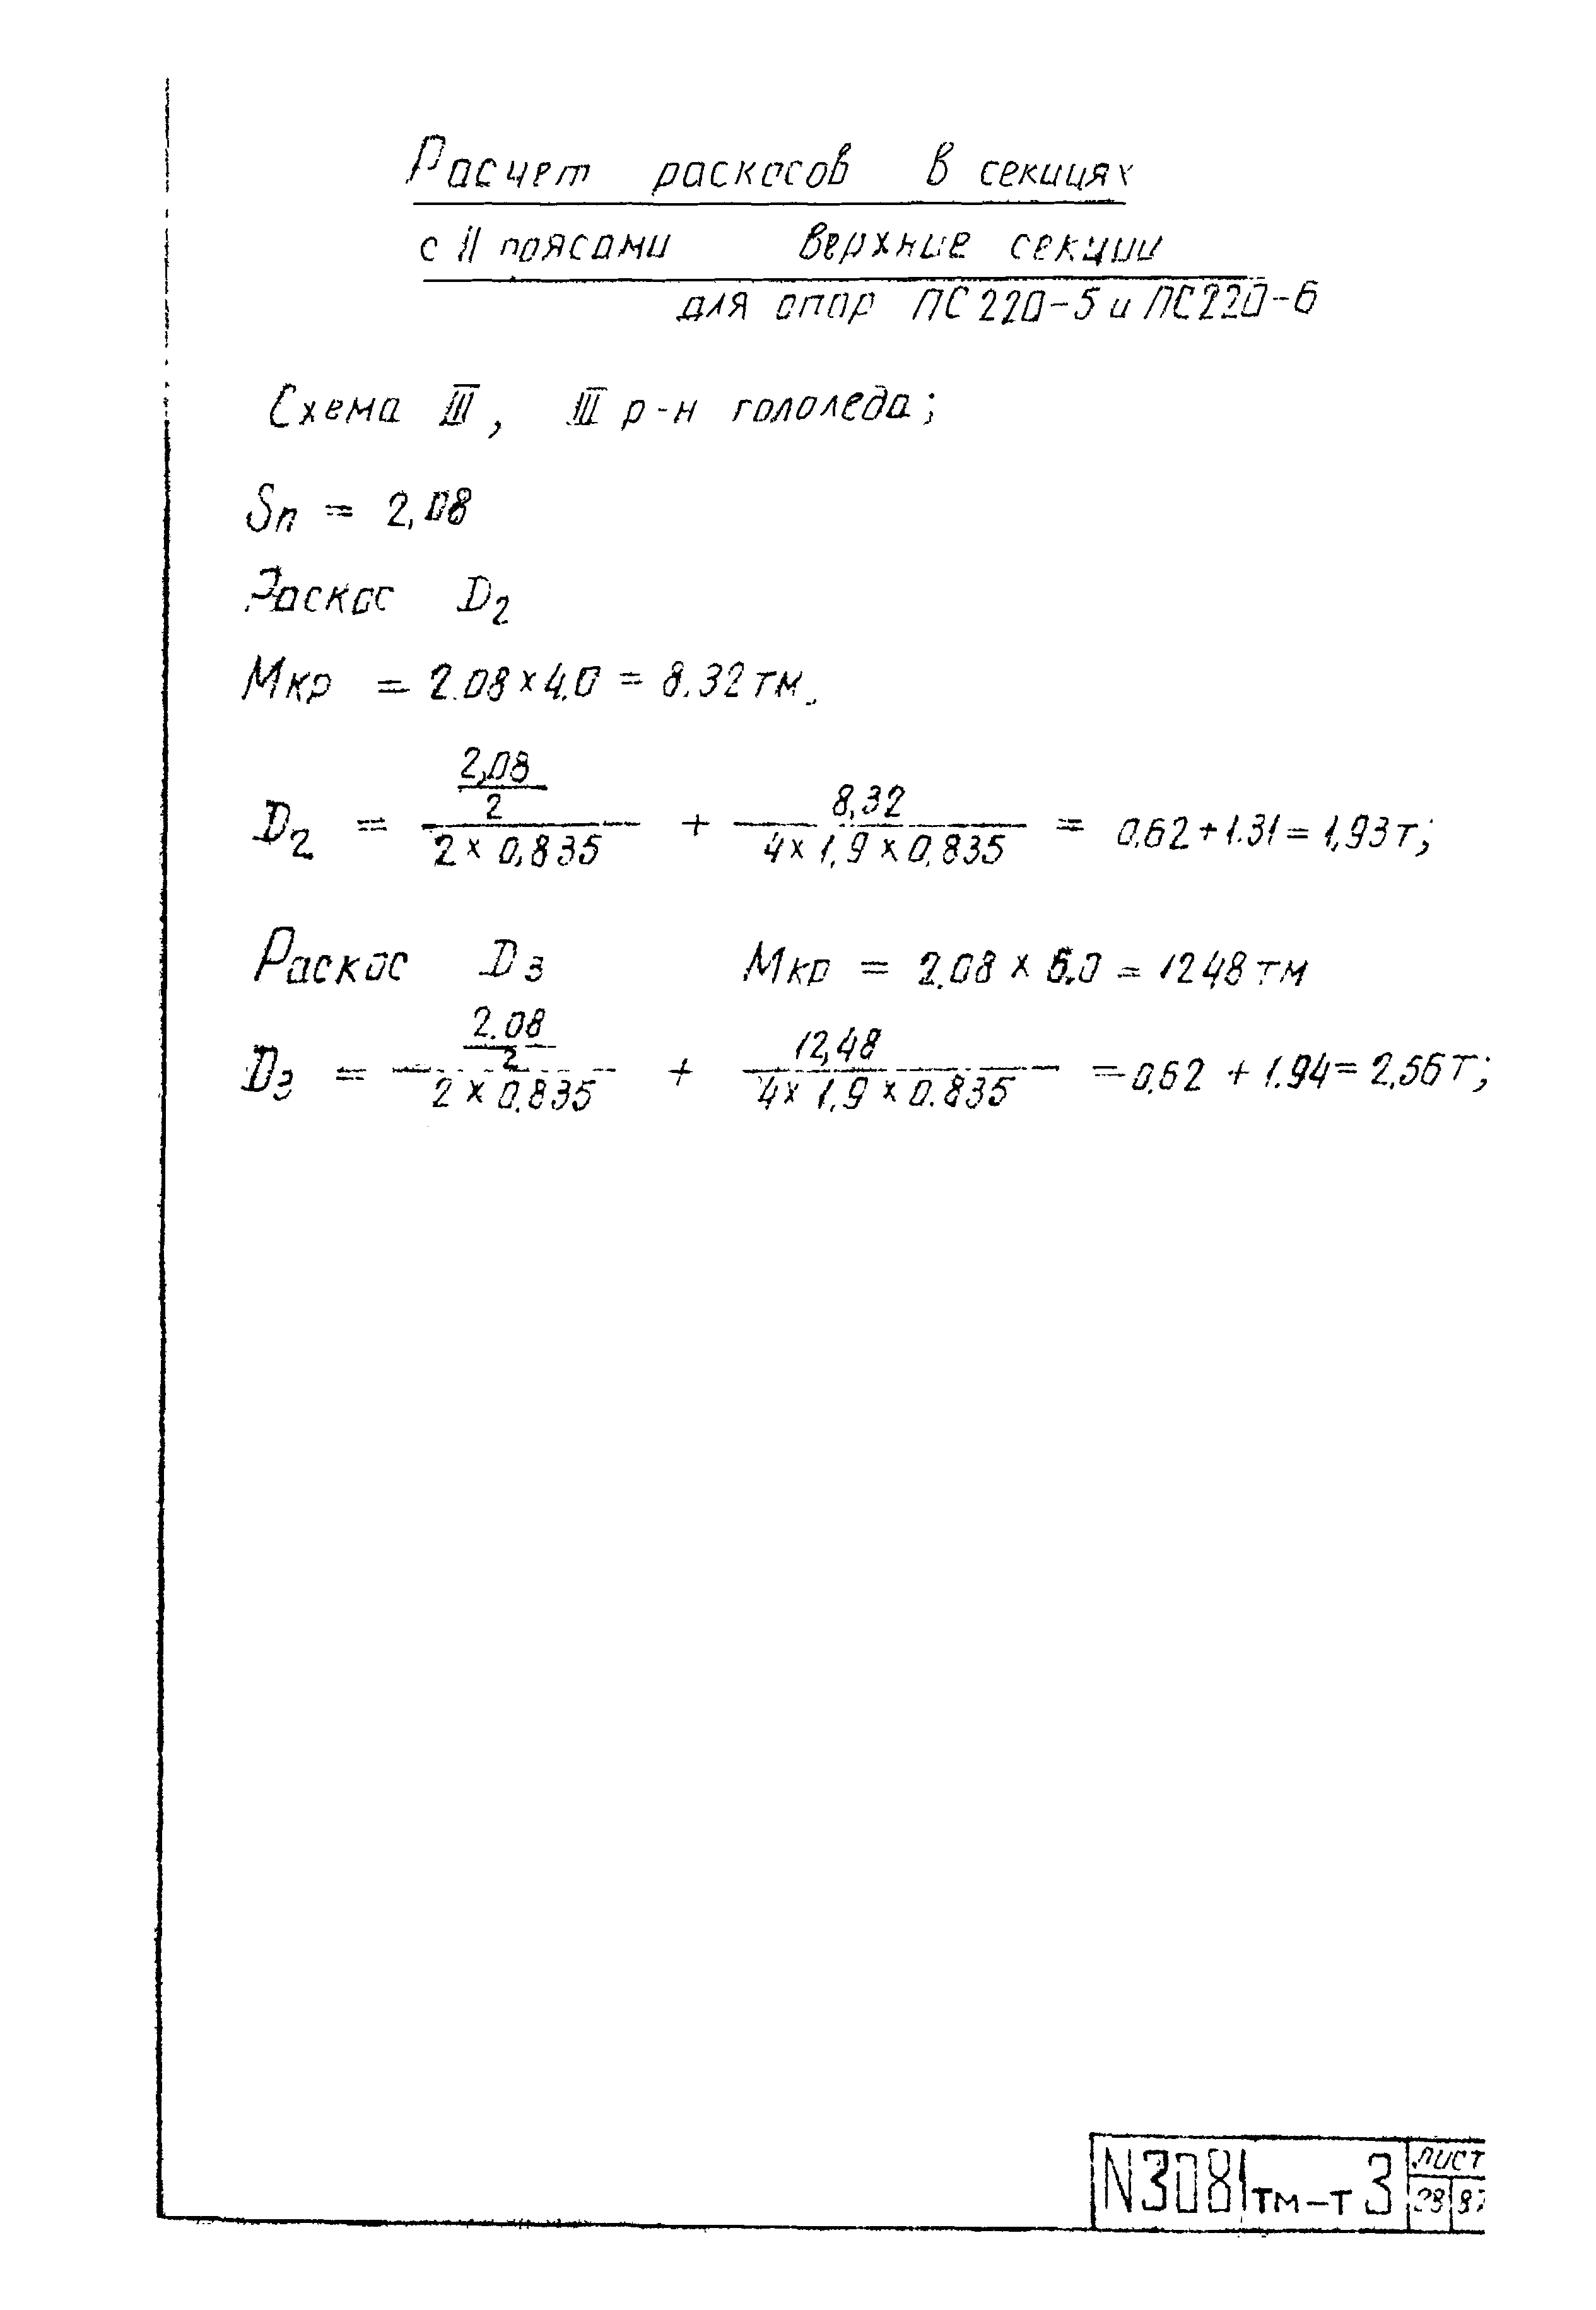 Расчет раскосов в секциях
с || поясами верхние секции
для опор ПС220-5 и ПС220-6
Схема III, III р-н гололеда;
Sп = 2,08
Раскос D2
Мкр = 2.08 × 4.0 = 8.32 тм.
D2 = (2,08/2)/(2 × 0,835) + 8,32/(4 × 1,9 × 0,835) = 0.62 + 1.31 = 1,93 т;
Раскос D3 Мкр = 2.08 × 6.0 = 1248 тм
D3 = (2.08/2)/(2 × 0.835) + 12,48/(4 × 1.9 × 0.835) = 0.62 + 1.94 = 2,56 т;
N3081тм-т3 лист
87